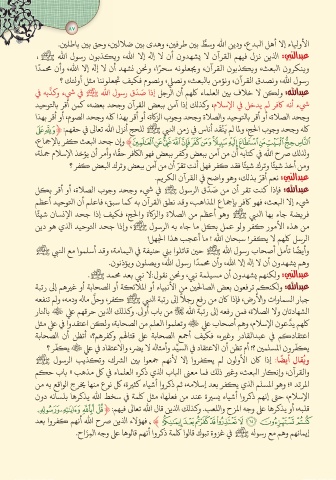 ٨٧
الأولياء إلا أهل البدع، ودين الله وسطٌ بين طرفين، وهدى بين ضلالين، وحق بين باطلين.
عبدالنبي: الذين نزل فيهم القرآن لا يشهدون أن لا إله إلا الله، ويكذبون رسول الله ﷺ،
وينكرون البعث، ويكذبون القرآن، ويجعلونه سحرًا، ونحن نشهد أن لا إله إلا الله، وأن محمدًا
رسول الله، ونصدق القرآن، ونؤمن بالبعث، ونصلي، ونصوم فكيف تجعلوننا مثل أولئك؟
عبدالله: ولكن لا خلاف بين العلماء كلهم أن الرجل إذا صَدّق رسول الله ﷺ في شيء، وكذّبه في
شيء أنه كافر لم يدخل في الإسلام، وكذلك إذا آمن ببعض القرآن وجحد بعضه؛ كمن أقر بالتوحيد
وجحد الصلاة، أو أقر بالتوحيد والصلاة وجحد وجوب الزكاة، أو أقر بهذا كله وجحد الصوم، أو أقر بهذا
كله وجحد وجوب الحج، ولما لم ينقَد أناس في زمن النبي ﷺ للحج أنزل الله تعالى في حقهم: ﴿وَلِلَّهِ عَلَى
النَّاسِ حِجُّ الْبَيْتِ مَنِ اسْتَطَاعَ إِلَيْهِ سَبِيلًا وَمَن كَفَرَ فَإِنَّ اللَّهَ غَنِيٌّ عَنِ الْعَالَمِينَ﴾ وإن جحد البعث كفر بالإجماع،
ولذلك صرح الله في كتابه أن من آمن ببعض وكفر ببعض فهو الكافر حقًا، وأمر أن يؤخذ الإسلام جملة،
ومن أخذ شيئًا وترك شيئًا فقد كفر، فهل أنت تقرّ أن من آمن ببعض وترك البعض كفر؟
عبدالنبي: نعم أقرّ بذلك، وهو واضح في القرآن الكريم.
عبدالله: فإذا كنت تقر أن من صَدّق الرسول ﷺ في شيء، وجحد وجوب الصلاة، أو أقر بكل
شيء إلا البعث، فهو كافر بإجماع المذاهب، وقد نطق القرآن به كما سبق، فاعلم أن التوحيد أعظم
فريضة جاء بها النبي ﷺ وهو أعظم من الصلاة والزكاة والحج، فكيف إذا جحد الإنسان شيئًا
من هذه الأمور كفر ولو عمل بكل ما جاء به الرسول ﷺ، وإذا جحد التوحيد الذي هو دين
الرسل كلهم لا يكفر! سبحان الله! ما أعجب هذا الجهل!
وأيضًا تأمل أصحاب رسول الله ﷺ حين قاتلوا بني حنيفة في اليمامة، وقد أسلموا مع النبي ﷺ
وهم يشهدون أن لا إله إلا الله، وأن محمدًا رسول الله ويصلون ويؤذنون.
عبدالنبي: ولكنهم يشهدون أن مسيلمة نبي، ونحن نقول: لا نبي بعد محمد ﷺ.
عبدالله: ولكنكم ترفعون بعض الصالحين من الأنبياء أو الملائكة أو الصحابة أو غيرهم إلى رتبة
جبار السماوات والأرض، فإذا كان من رفع رجلاً إلى رتبة النبي ﷺ كفر، وحلّ ماله ودمه، ولم تنفعه
الشهادتان ولا الصلاة، فمن رفعه إلى رتبة الله ﷻ من باب أولى. وكذلك الذين حرقهم علي ﷺ بالنار
كلهم يدّعون الإسلام، وهم أصحاب علي ﷺ وتعلموا العلم من الصحابة، ولكن اعتقدوا في علي مثل
اعتقادكم في عبدالقادر وغيره، فكيف أجمع الصحابة على قتالهم وكفرهم؟، أتظن أن الصحابة
يكفرون المسلمين؟! أم تظن أن الاعتقاد في السيد وأمثاله لا يضر، والاعتقاد في علي ﷺ يكفر؟
ويُقال أيضًا: إذا كان الأولون لم يكفروا إلا لأنهم جمعوا بين الشرك وتكذيب الرسول ﷺ
والقرآن، وإنكار البعث، وغير ذلك فما معنى الباب الذي ذكره العلماء في كل مذهب «باب حكم
المرتد»! وهو المسلم الذي يكفر بعد إسلامه، ثم ذكروا أشياء كثيرة، كل نوع منها يخرج الواقع به من
الإسلام، حتى إنهم ذكروا أشياء يسيرة عند من فعلها، مثل كلمة في سخط الله يذكرها بلسانه دون
قلبه، أو يذكرها على وجه المزح واللعب، وكذلك الذين قال الله تعالى فيهم: ﴿قُلْ أَبِاللَّهِ وَآيَاتِهِ وَرَسُولِهِ
كُنتُمْ تَسْتَهْزِءُونَ ﴿٦٥﴾ لَا تَعْتَذِرُوا قَدْ كَفَرْتُم بَعْدَ إِيمَانِكُمْ﴾، فهؤلاء الذين صرح الله أنهم كفروا بعد
إيمانهم وهم مع رسوله ﷺ في غزوة تبوك قالوا كلمة ذكروا أنهم قالوها على وجه المزاح.